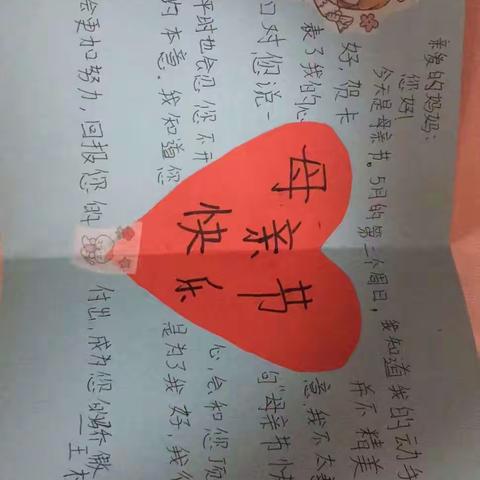 亲爱的妈妈:
您好!
今天是母亲节。5月的第二个周日,我知道我的动手
好,贺卡并不精美
表了我的心意,我不太
口对您说一句"母亲节快
平时也会忍您不开心,会和您顶
的本意。我知道您是为了我好,我
会更加努力,回报您的付出,成为您的骄傲
—王
母亲节
快乐